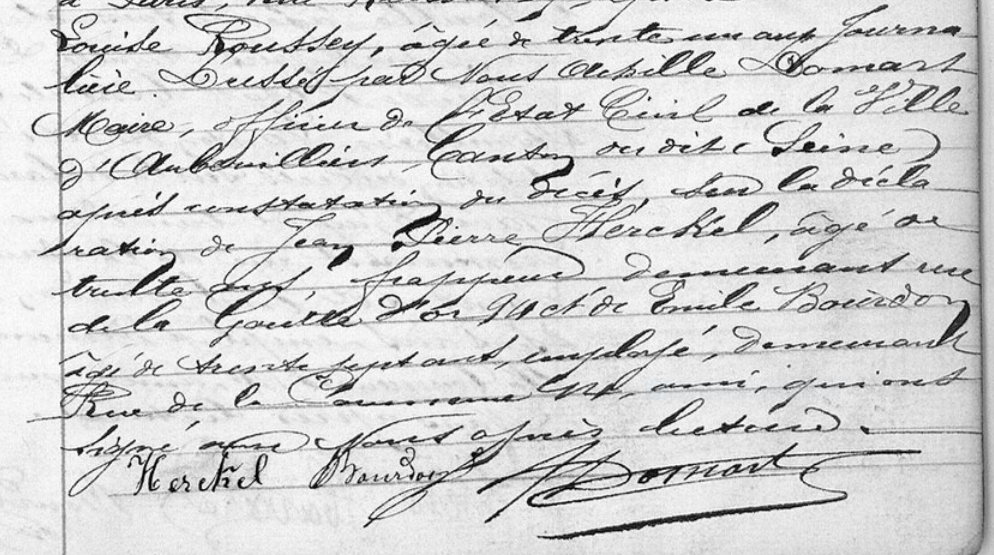 à Paris, rue
Louise Roussey, âgée de trente un ans Journa
lière Dressé par Nous Achille Domart
Maire, officier de l'Etat Civil de la Ville
d'Aubervilliers Canton du dit (Seine)
après constatation du décès, sur la décla
ration de Jean Pierre Herckel, âgé de
trente ans, frappeur demeurant rue
de la Goutte d'or 94 et de Emile Bourdon
âgé de trente sept ans, employé, demeurant
Rue de la Commune 94, ami, qui ont
signé avec Nous après lecture.
Herckel Bourdon Domart